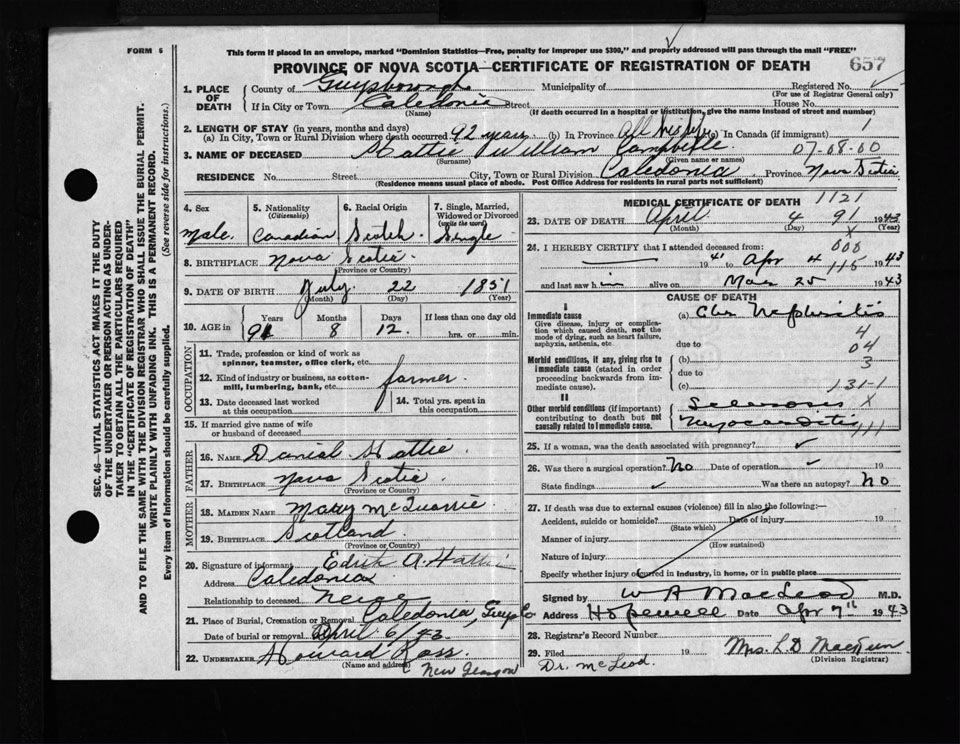 FORM 6
This form if placed in an envelope, marked "Dominion Statistics—Free, penalty for improper use $300," and properly addressed will pass through the mail "FREE"
PROVINCE OF NOVA SCOTIA—CERTIFICATE OF REGISTRATION OF DEATH
657
1. PLACE OF DEATH
County of Guysborough Municipality of Registered No.
(For use of Registrar General only)
If in City or Town Caledonia Street House No.
(Name) (If death occurred in a hospital or institution, give the name instead of street and number)
2. LENGTH OF STAY (in years, months and days)
(a) In City, Town or Rural Division where death occurred 92 years (b) In Province All his life (c) In Canada (if immigrant) 1
3. NAME OF DECEASED Hattie William 07-08-00
(Surname) (Given name or names)
RESIDENCE No. Street City, Town or Rural Division Caledonia Province Nova Scotia
(Residence means usual place of abode. Post Office Address for residents in rural parts not sufficient)
SEC. 46—VITAL STATISTICS ACT MAKES IT THE DUTY
OF THE UNDERTAKER OR PERSON ACTING AS UNDER-
TAKER TO OBTAIN ALL THE PARTICULARS REQUIRED
IN THE "CERTIFICATE OF REGISTRATION OF DEATH"
AND TO FILE THE SAME WITH THE DIVISION REGISTRAR WHO SHALL ISSUE THE BURIAL PERMIT.
WRITE PLAINLY WITH UNFADING INK. THIS IS A PERMANENT RECORD.
Every item of information should be carefully supplied. (See reverse side for instructions.)
4. Sex
Male
5. Nationality
(Citizenship)
Canadian
6. Racial Origin
Scotch
7. Single, Married, Widowed or Divorced
(write the word)
Single
8. BIRTHPLACE Nova Scotia
(Province or Country)
9. DATE OF BIRTH July 22 1851
(Month) (Day) (Year)
10. AGE in Years Months Days If less than one day old
91 8 12 hrs. or min.
OCCUPATION
11. Trade, profession or kind of work as
spinner, teamster, office clerk, etc.
12. Kind of industry or business, as cotton-
mill, lumbering, bank, etc. farmer
13. Date deceased last worked at this occupation
14. Total yrs. spent in this occupation
15. If married give name of wife
or husband of deceased
FATHER
16. NAME Danial Hattie
17. BIRTHPLACE Nova Scotia
(Province or Country)
MOTHER
18. MAIDEN NAME Mary McQuarrie
19. BIRTHPLACE Scotland
(Province or Country)
20. Signature of informant Edith A. Hattie
Address Caledonia
Relationship to deceased Neice
21. Place of Burial, Cremation or Removal Caledonia, Guys Co
Date of burial or removal April 6/43
22. UNDERTAKER Howard Ross
(Name and address) New Glasgow
MEDICAL CERTIFICATE OF DEATH 1121
23. DATE OF DEATH April 4 91 1943
(Month) (Day) (Year)
X
24. I HEREBY CERTIFY that I attended deceased from: 000
19 41 to Apr 4 115 1943
and last saw him alive on Mar 25 1943
CAUSE OF DEATH
I
Immediate cause
Give disease, injury or complica-
tion which caused death, not the
mode of dying, such as heart failure,
asphyxia, asthenia, etc.
(a) Chr Nephritis
4
due to 04
Morbid conditions, if any, giving rise to
immediate cause (stated in order
proceeding backwards from im-
mediate cause).
(b) 3
due to
(c) 131-1
II
Other morbid conditions (if important)
contributing to death but not
causally related to immediate cause.
Sclerosis X
Myocarditis 111
25. If a woman, was the death associated with pregnancy?
26. Was there a surgical operation? No Date of operation 19
State findings Was there an autopsy? No
27. If death was due to external causes (violence) fill in also the following:—
Accident, suicide or homicide? Date of injury 19
(State which)
Manner of injury
(How sustained)
Nature of injury
Specify whether injury occurred in industry, in home, or in public place
Signed by W A MacLeod M.D.
Address Hopewell Date Apr 7th 1943
28. Registrar's Record Number
29. Filed 19 Mrs. L.D.
Dr. McLeod. (Division Registrar)